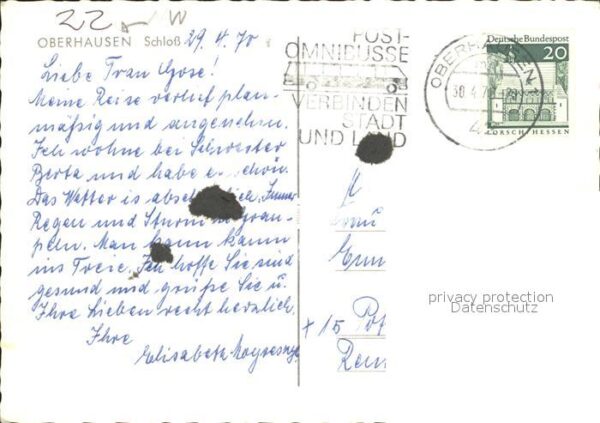 22 NW
OBERHAUSEN Schloß 29.4.70
Liebe Frau Gose!
Meine Reise verlief plan-
mäßig und angenehm.
Ich wohne bei Schwester
Berta und habe es schön.
Das Wetter is Immer
Regen und Sturm
peln. Man kann kaum
ins Freie. Ich hoffe Sie sind
gesund und grüße Sie u.
Ihre Lieben recht herzlich.
Ihre
Elisabeth
POST-
OMNIBUSSE
VERBINDEN
STADT
UND LAND
OBERHAUSEN
30.4.70
Deutsche Bundespost
20
LORSCH/HESSEN
privacy protection
Datenschutz